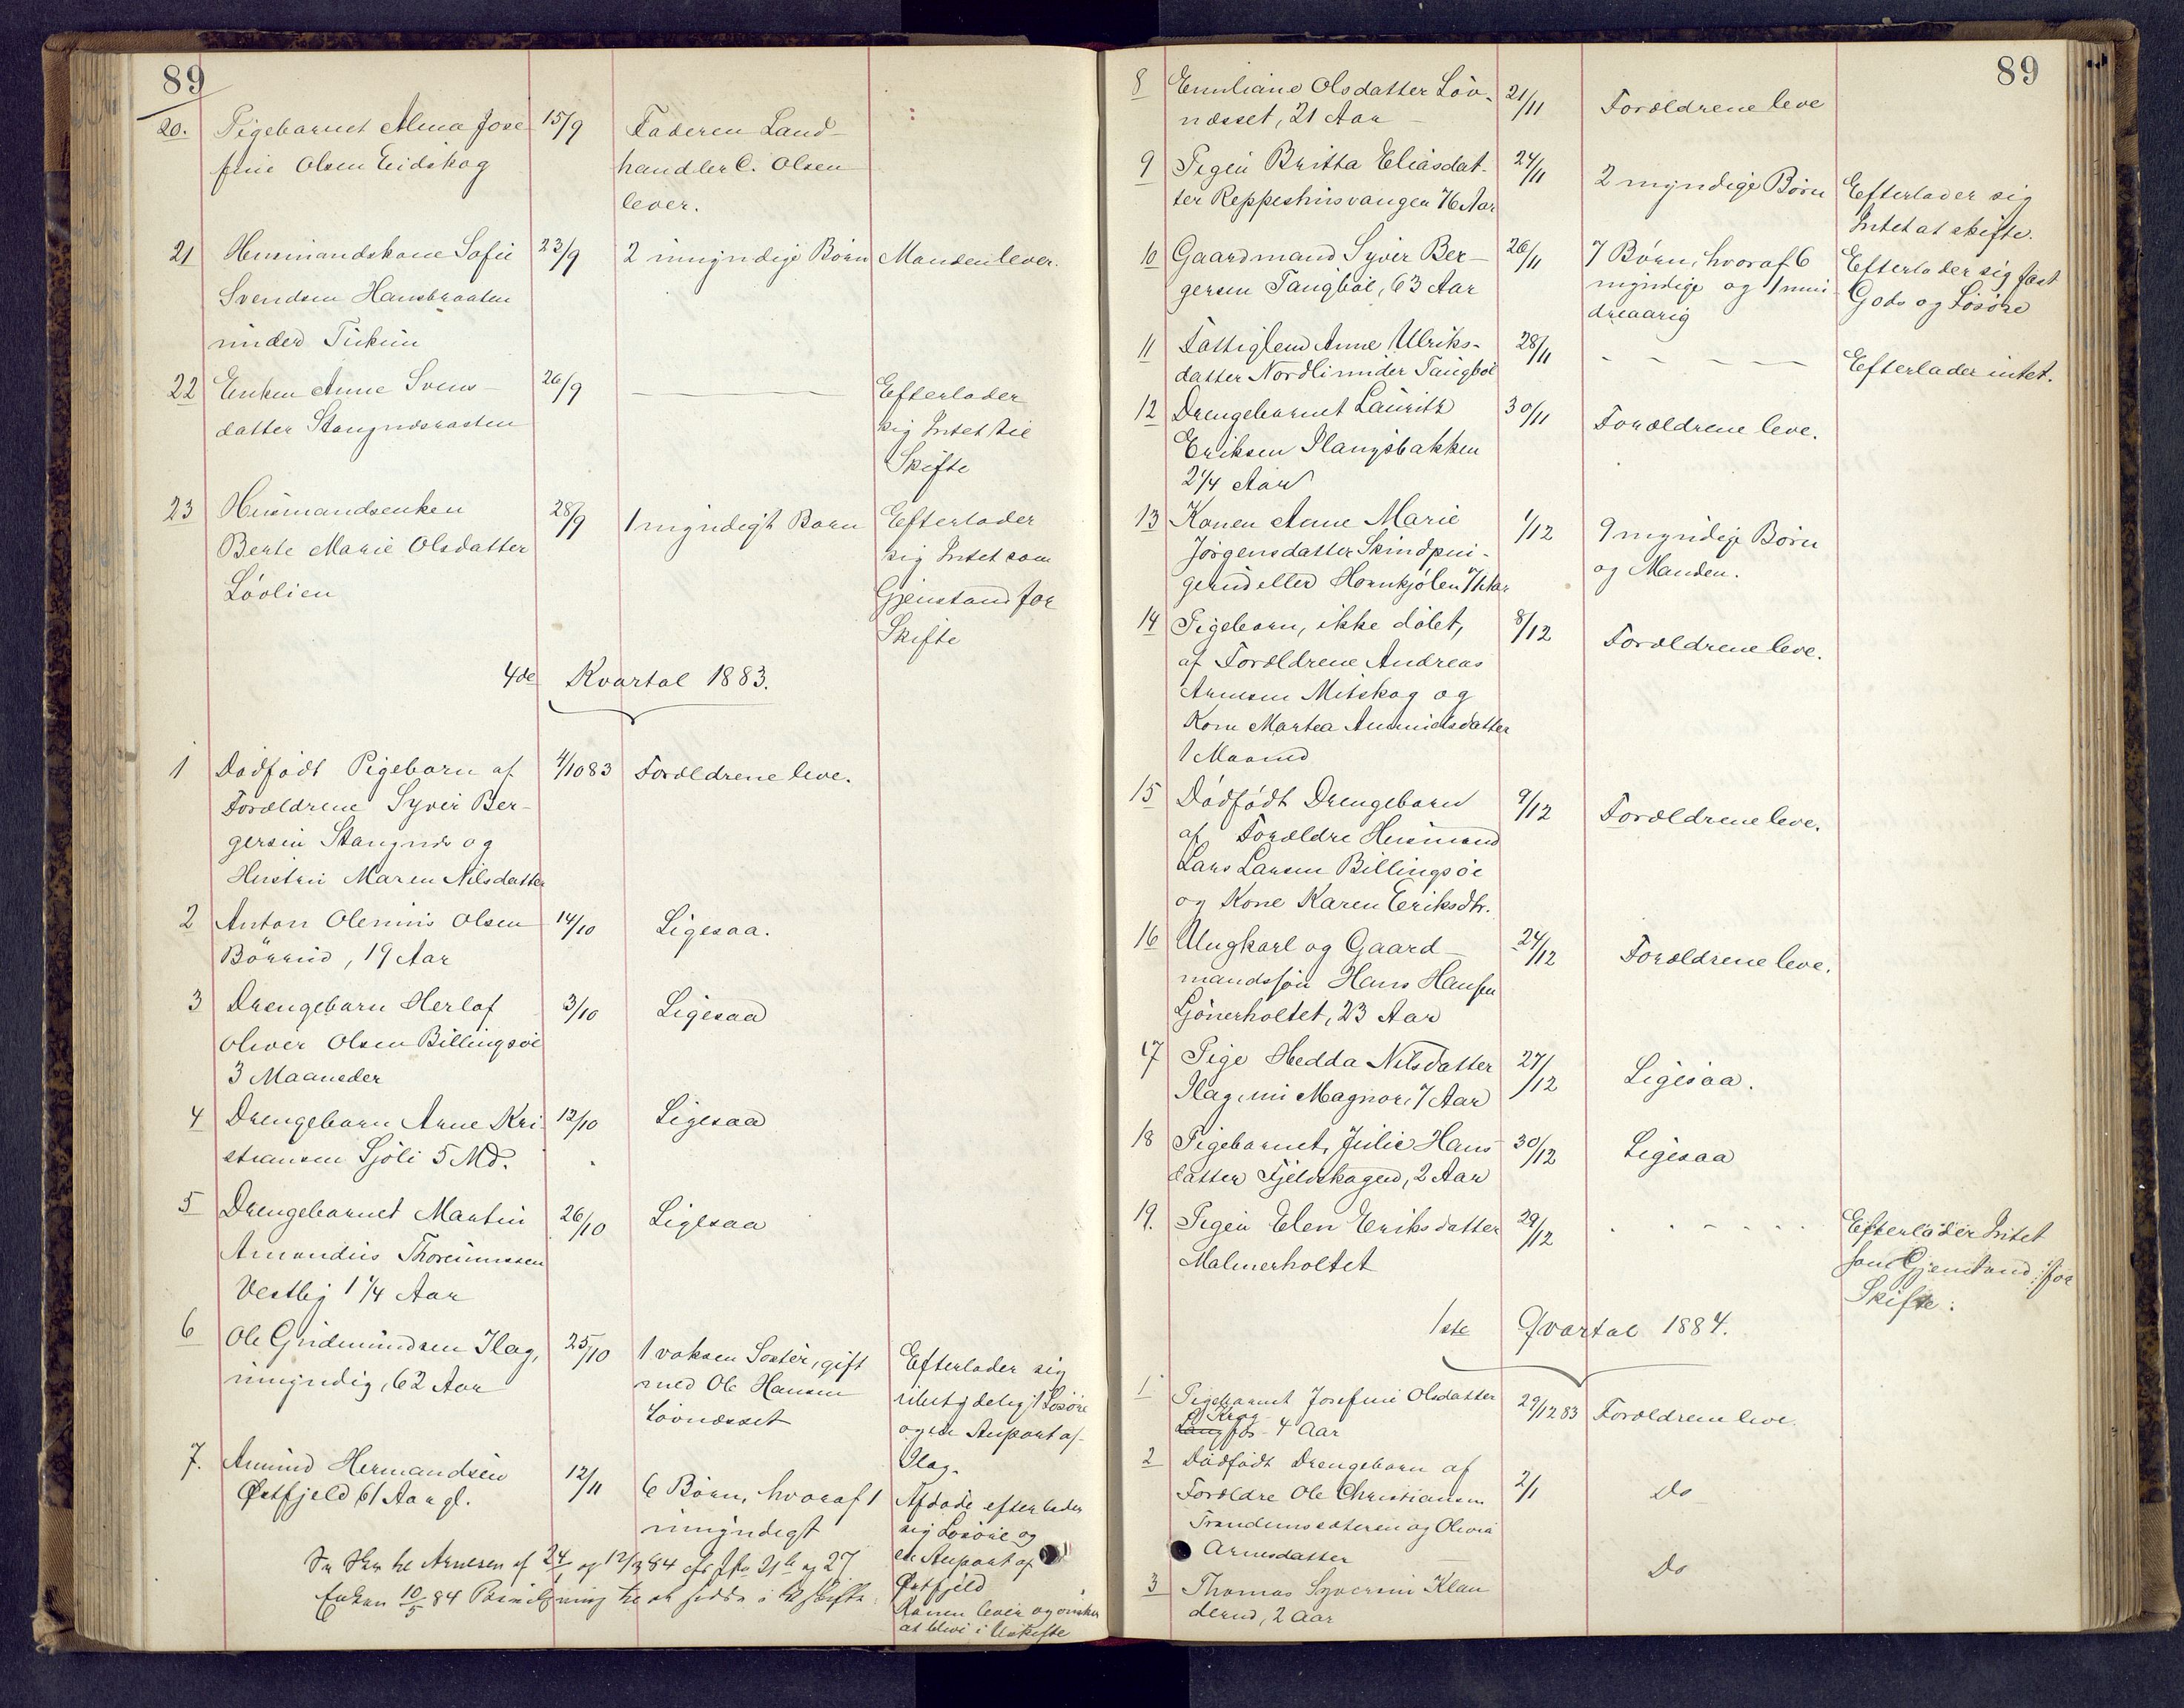 89
20. Pigebarnet Alma Jose- 15/9 Faderen Land-
fine Olsen Eidskog handler C. Olsen
lever.
21 Husmandskone Sofie 23/9 2 umyndige Børn Manden lever.
Svendsen Hansbraaten
under
22 Enken Anne Svens- 26/9 — Efterlader
datter Stangnæsrasten sig Intet til
Skifte
23 Husmandsenken 28/9 1 myndigt Barn Efterlader
Berte Marie Olsdatter sig Intet som
Løvlien Gjenstand for
Skifte
4de Kvartal 1883.
1 Dødfødt Pigebarn af 4/10 83 Forældrene leve.
Forældrene Syver Ber-
gersen Stangnæs og
Hustru Maren Nilsdatter
2 Anton Olenius Olsen 14/10 Ligesaa.
Børrud, 19 Aar
3 Drengebarn Herlof 3/10 Ligesaa
Oliver Olsen Billingsøe
3 Maaneder
4 Drengebarn Arne Kri- 12/10 Ligesaa
stiansen Sjøli 5 Md.
5 Drengebarnet Martin 26/10 Ligesaa
Amandus
Vestby 1 1/4 Aar
6 Ole Gudmundsen Ilag, 25/10 1 voksen Søster, gift Efterlader sig
umyndig, 62 Aar med Ole Hansen ubetydeligt Løsøre
Løvnæsset og en Anpart af
Ilag.
7. Amund Hermandsen 12/11 6 Børn, hvoraf 1 Afdøde efterlader
Østfjeld 61 Aar gl. umyndigt sig Løsøre og
en Anpart af
Østfjeld
Konen lever og ønsker
at blive i Uskifte
89
8 Emiliane Olsdatter Løv- 21/11 Forældrene leve
næsset, 21 Aar
9 Pigen Britta Eliasdat- 24/11 2 myndige Børn Efterlader sig
ter Reppeshusvangen 76 Aar Intet at skifte.
10 Gaardmand Syver Ber- 26/11 7 Børn, hvoraf 6 Efterlader sig fast
gersen Tangbøl, 63 Aar myndige og 1 min- Gods og Løsøre
dreaarig
11 Fattiglem Anne Ulriks- 28/11 — Efterlader intet.
datter Nordli under Tangbøl
12 Drengebarnet Lauritz 30/11 Forældrene leve.
Eriksen Slangsbakken
2 1/4 Aar
13 Konen Anne Marie 1/12 9 myndige Børn
Jørgensdatter Skindpun- og Manden.
gerud eller Hornkjølen 71 Aar
14 Pigebarn, ikke døbt, 8/12 Forældrene leve.
af Forældrene Andreas
Arnesen Mitskog og
Kone Martea Amundsdatter
1 Maaned
15 Dødfødt Drengebarn 9/12 Forældrene leve.
af Forældre Husmand
Lars Larsen Billingsøe
og Kone Karen Eriksdtr.
16 Ungkarl og Gaard- 24/12 Forældrene leve.
mandssøn Hans Hansen
Gjønerholtet, 23 Aar
17 Pige Hedda Nilsdatter 27/12 Ligesaa.
Ilag, Magnor, 7 Aar
18 Pigebarnet, Julie Hans- 30/12 Ligesaa
datter Fjeldskogen, 2 Aar
19. Pigen Elen Eriksdatter 29/12 — Efterlader Intet
Malmerholtet som Gjenstand for
Skifte.
1ste Qvartal 1884.
1 Pigebarnet Josefine Olsdatter 29/12 83 Forældrene leve.
4 Aar
2 Dødfødt Drengebarn af 2/1 Do
Forældre Ole Christiansen
Trandemssæteren og Olivia
Arnesdatter
3 Thomas Syversen Klan- Do
derud, 2 Aar